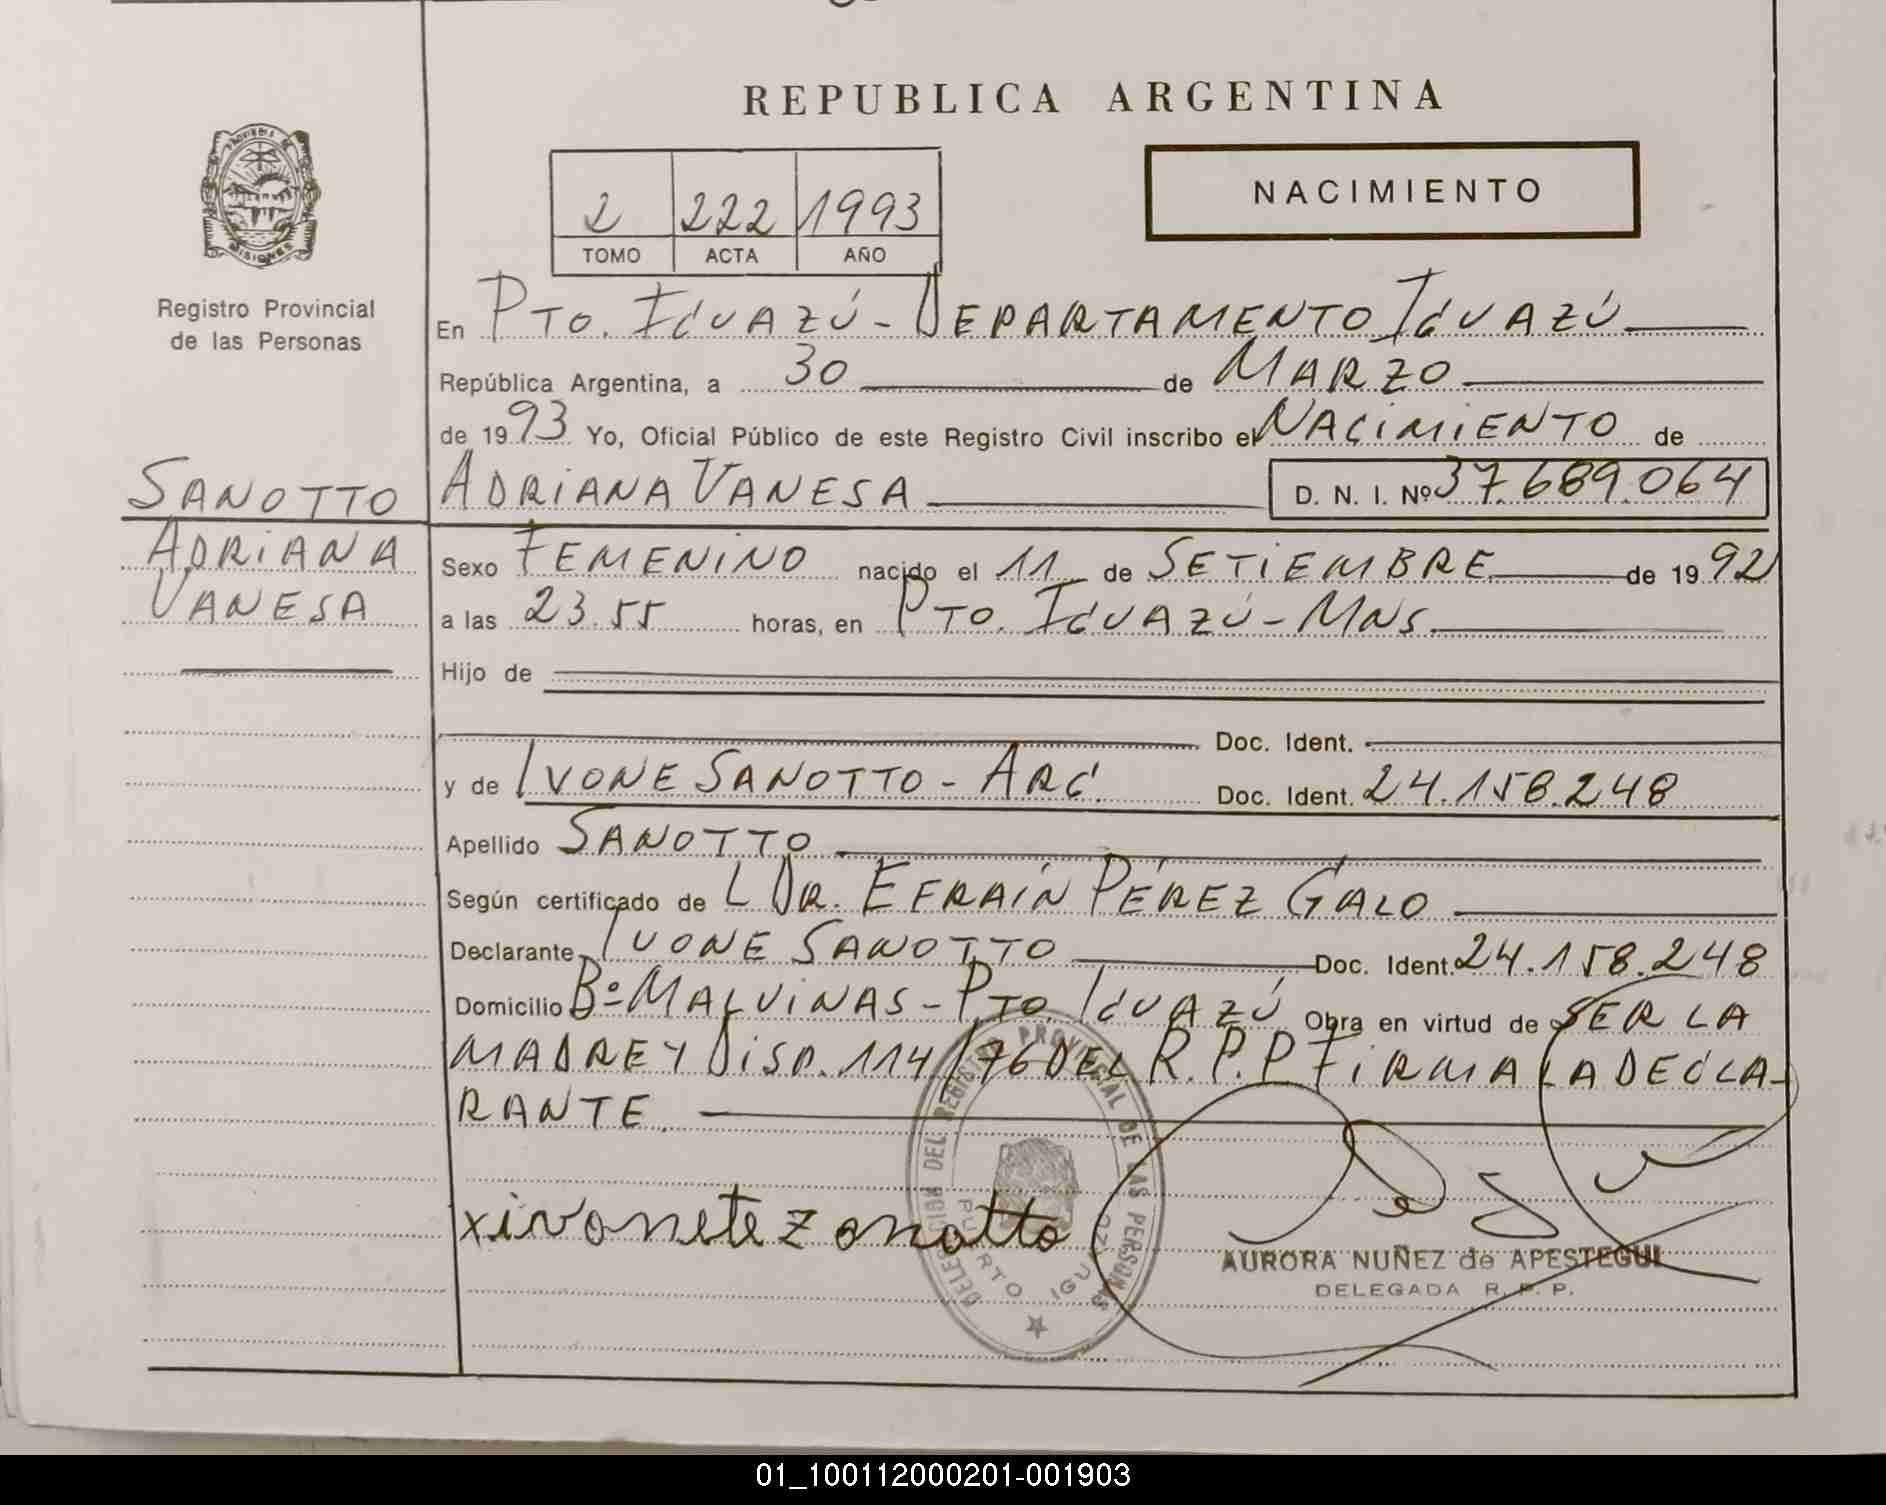 REPUBLICA ARGENTINA
PROVINCIA DE
MISIONES
Registro Provincial
de las Personas
2 222 1993
TOMO ACTA AÑO
NACIMIENTO
En PTO. IGUAZÚ - DEPARTAMENTO IGUAZÚ
República Argentina, a 30 de MARZO
de 1993 Yo, Oficial Público de este Registro Civil inscribo el NACIMIENTO de
ADRIANA VANESA D. N. I. Nº 37.689.064
SANOTTO
ADRIANA
VANESA
Sexo FEMENINO nacido el 11 de SETIEMBRE de 1992
a las 23.55 horas, en PTO. IGUAZÚ - MNS.
Hijo de
Doc. Ident.
y de IVONE SANOTTO - ARG. Doc. Ident. 24.158.248
Apellido SANOTTO
Según certificado de L DR. EFRAÍN PÉREZ GALO
Declarante IVONE SANOTTO Doc. Ident. 24.158.248
Domicilio Bº MALVINAS - PTO. IGUAZÚ Obra en virtud de SER LA
MADRE Y DISP. 114/76 DEL R.P.P FIRMA LA DECLA-
RANTE.
xivonete zanotto
DELEGACION DEL REGISTRO PROVINCIAL DE LAS PERSONAS
PUERTO IGUAZU
AURORA NUÑEZ de APESTEGUI
DELEGADA R. P. P.
01_100112000201-001903